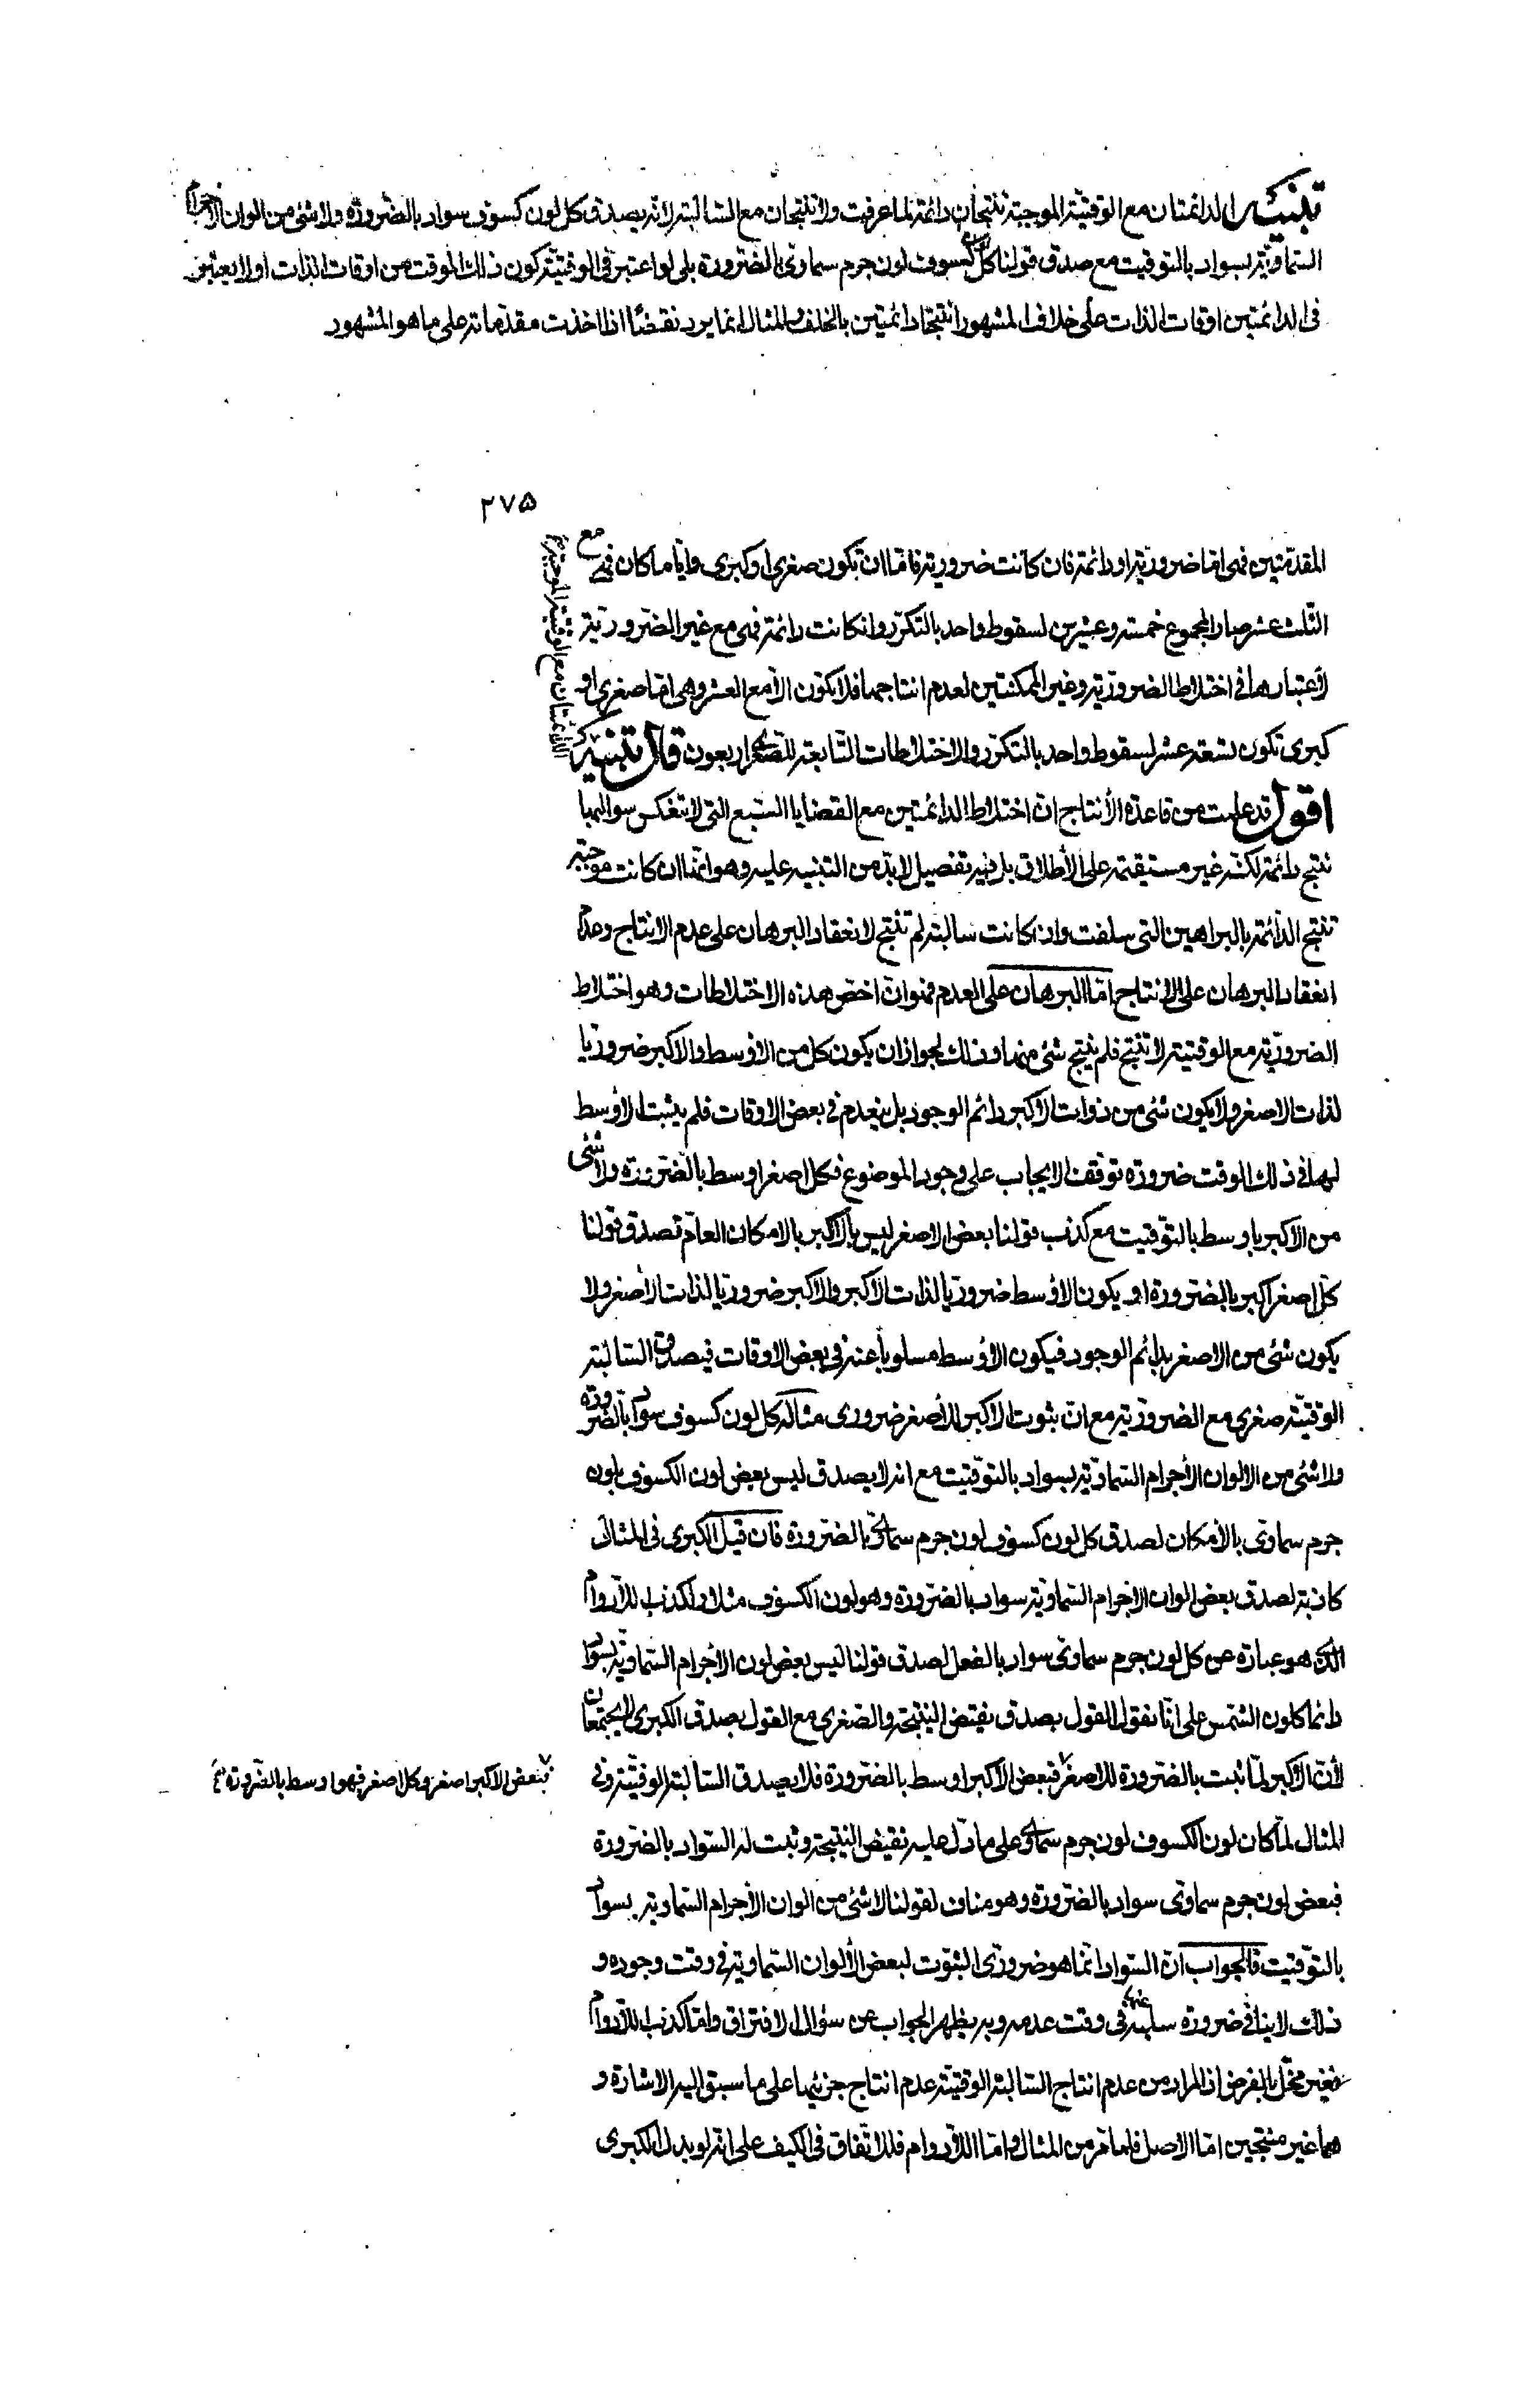 تنبيه الدائمتان مع الوقتية الموجبة تنتجان دائمة لما عرفت ولا تنتجان مع السالبة لانه يصدق كل لون كسوف سواد بالضرورة ولا شئ من الوان الاجرام
السماوية بسواد بالتوقيت مع صدق قولنا كل لون كسوف لون جرم سماوي بالضرورة بلى لو اعتبر في الوقتية كون ذلك الوقت من اوقات الذات اولا يعتبر
في الدائمتين اوقات الذات على خلاف المشهور انتجتا دائمتين بالخلف والمثال انما يرد نقضا اذا اخذت مقدماته على ما هو المشهور
٢٧۵
المقدمتين فهى اما ضرورية او دائمة فان كانت ضرورية فاما ان تكون صغرى او كبرى وايا ما كان فهى مع
الثلث عشر صار المجموع خمسة وعشرين لسقوط واحد بالتكرر وان كانت دائمة فهى مع غير الضرورية
لأعتبارها في اختلاط الضرورية وغير الممكنتين لعدم انتاجهما فلا يكون الا مع العشر وهى اما صغرى او
كبرى تكون تسعة عشر لسقوط واحد بالتكرر والاختلاطات التابعة للصغرى اربعون قال تنبيه
الدائمتان مع الوقتية الموجبة
اقول قد علمت من قاعدة الأنتاج ان اختلاط الدائمتين مع القضايا السبع التي لا تنعكس سوالبها
ينتج دائمة لكنه غير مستقيمة على الأطلاق بل فيه تفصيل لا بد من التنبيه عليه وهو انها ان كانت موجبة
تنتج الدائمة بالبراهين التي سلفت وان كانت سالبة لم تنتج لانعقاد البرهان على عدم الانتاج وعدم
انعقاد البرهان على الانتاج اما البرهان على العدم فهو ان اخص هذه الاختلاطات وهو اختلاط
الضرورية مع الوقتية لا تنتج فلم ينتج شئ منها وذلك لجواز ان يكون كل من الاوسط والاكبر ضروريا
لذات الاصغر ولا يكون شئ من ذوات الاكبر دائم الوجود بل ينعدم في بعض الاوقات فلم يثبت الاوسط
لها في ذلك الوقت ضرورة توقف الايجاب على وجود الموضوع فكل اصغر اوسط بالضرورة ولا شئ
من الاكبر باوسط بالتوقيت مع كذب قولنا بعض الاصغر ليس بالاكبر بالامكان العام لصدق قولنا
كل اصغر اكبر بالضرورة او يكون الاوسط ضروريا لذات الاكبر والاكبر ضروريا لذات الاصغر ولا
يكون شئ من الاصغر بدائم الوجود فيكون الاوسط مسلوبا عنه في بعض الاوقات فيصدق السالبة
الوقتية صغرى مع الضرورية مع ان ثبوت الاكبر للأصغر ضرورى مثاله كل لون كسوف سواد بالضرورة
ولا شئ من الالوان الأجرام السماوية بسواد بالتوقيت مع انه لا يصدق ليس بعض لون الكسوف بلون
جرم سماوى بالأمكان لصدق كل لون كسوف لون جرم سماوى بالضرورة فان قيل الكبرى في المثال
كاذبة لصدق بعض الوان الاجرام السماوية سواد بالضرورة وهو لون الكسوف مثلا ولكذب اللادوام
الذى هو عبارة عن كل لون جرم سماوى سواد بالفعل لصدق قولنا ليس بعض لون الأجرام السماوية بسواد
دائما كلون الشمس على انا نقول القول بصدق نقيض النتيجة والصغرى مع القول بصدق الكبرى لا يجتمعان
لأن الأكبر لما ثبت بالضرورة للاصغر فبعض الاكبر اوسط بالضرورة فلا يصدق السالبة الوقتية وفى
فبعض الاكبر اصغر وكل اصغر فهو اوسط بالضرورة
المثال لما كان لون الكسوف لون جرم سماوى على ما دل عليه نقيض النتيجة وثبت له السواد بالضرورة
فبعض لون جرم سماوى سواد بالضرورة وهو مناف لقولنا لا شئ من الوان الأجرام السماوية بسواد
بالتوقيت فالجواب ان السواد انما هو ضرورى الثبوت لبعض الألوان السماوية في وقت وجوده و
ذلك لا ينافى ضرورة سلبه عنه في وقت عدمه وبه يظهر الجواب عن سؤال الافتراق واما كذب اللادوام
فغير مخل بالفرض اذ المراد من عدم انتاج السالبة الوقتية عدم انتاج جزئيها على ما سبق اليه الاشارة و
هما غير منتجين اما الاصل فلما مر من المثال واما اللادوام فللاتفاق في الكيف على انه لو بدل الكبرى